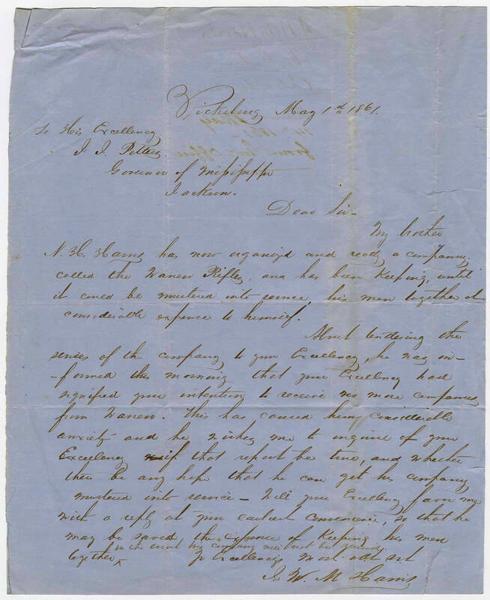 Vicksburg May 1st 1861.
To His Excellency
J. J. Pettus
Governor of Mississippi
Jackson.
Dear Sir-
My brother
N. H. Harris has now organized and ready a company,
called the Warren Rifles, and has been keeping, until
it could be mustered into service, his men together at
considerable expense to himself.
Upon tendering the
services of the company to your Excellency, he was in-
-formed this morning that your Excellency had
signified your intention to receive no more companies
from Warren. This has caused him considerable
anxiety and he wishes me to inquire of your
Excellency if that report be true, and whether
there be any hope that he can get his company
mustered into service - Will your Excellency favor me
with a reply at your earliest convenience, so that he
may be saved, the expense of keeping his men
in the event his company will not be
together, yr Excellency's most obt svt
W. M. Harris